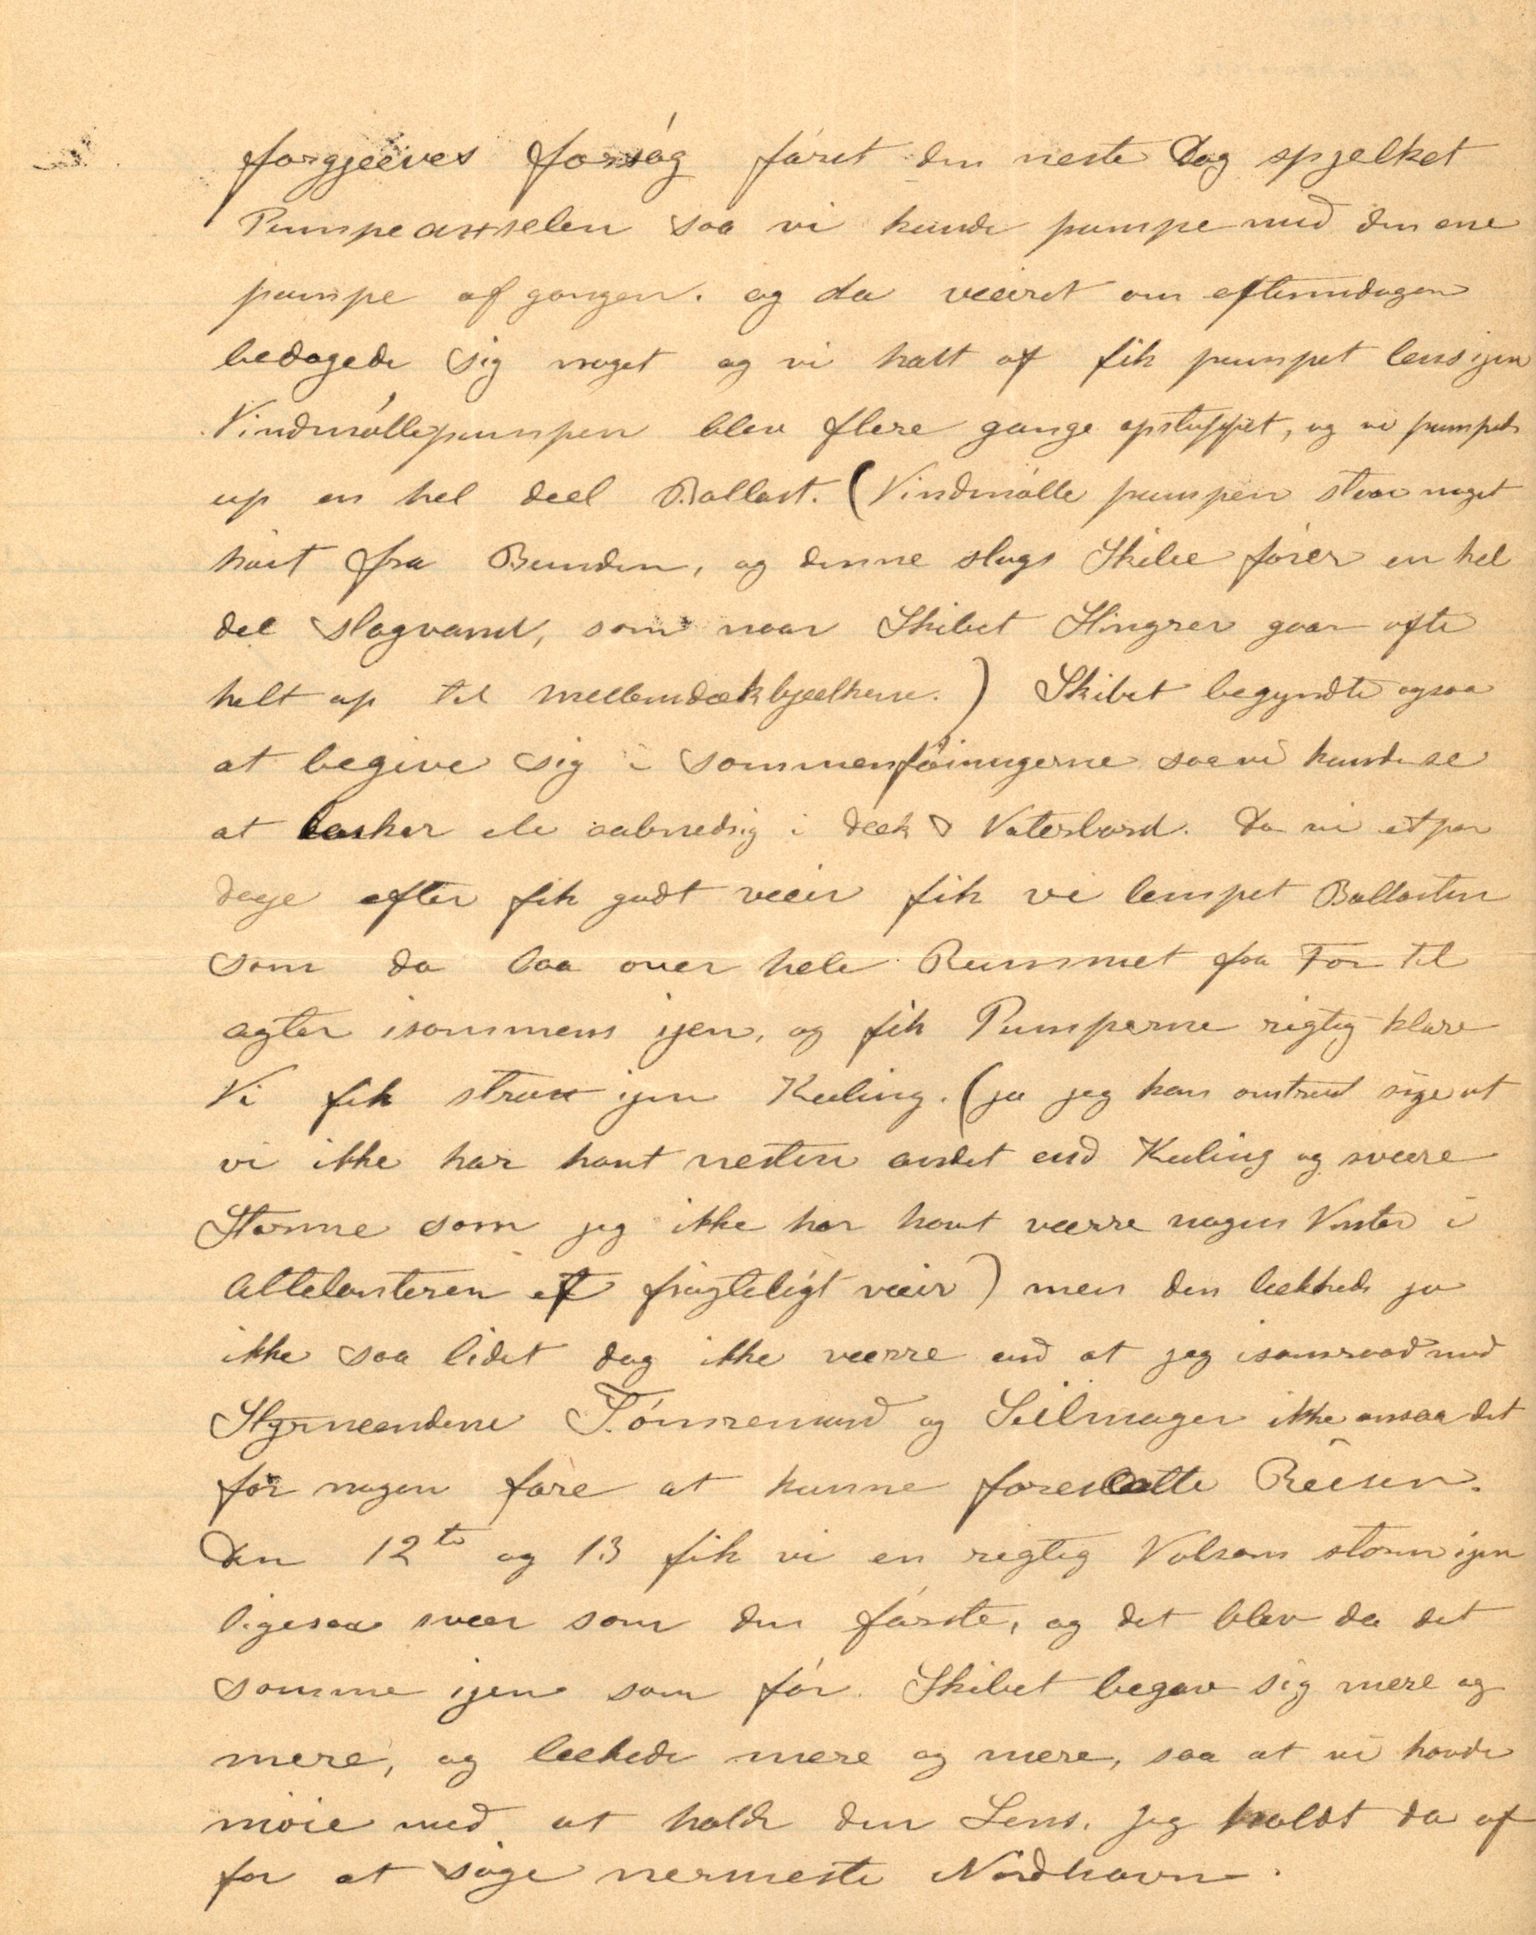 forgjeeves forsóg fóret den neste Dag spjelket
Pumpeaxselen saa vi kunde pumpe med den ene
pumpe af gangen. og da veiret om eftermidagen
bedagede sig noget og vi halt af fik pumpet lens ijen
Vindmóllepumpen blev flere gange opstoppet, og vi pumpede
up en hel deel Ballast. (Vindmólle pumpen staar noget
hóit fra Bunden, og denne slags Skibe fórer en hel
del slagvand, som naar Skibet Slingrer gaar ofte
helt up til mellemdækbjeelkerne.) Skibet begyndte ogsaa
at begive sig i sammenfóiningerne saa vi kunde se
at aabnedsig i deek & Vaterbord. Da vi et par
dage efter fik godt veeir fik vi lempet Ballasten
som da laa over hele Rummet fra For til
agter isammens ijen, og fik Pumperne rigtig klare
Vi fik strax ijen Kuling. (ja jeg kan omtrent sige at
vi ikke har havt nesten andet end Kuling og sveere
Storme som jeg ikke har havt værre nogen Vinter i
Attelanteren et frygteligt veeir) men den leekkede jo
ikke saa lidet dog ikke veerre end at jeg isamraad med
Styrmeendene Tómremand og Seilmager ikke ansaa det
for nogen fare at kunne foresætte Reisen.
Den 12te og 13 fik vi en rigtig Volsom storm ijen
ligesaa sveer som den fórste, og det blev da det
samme ijen som fór. Skibet begav sig mere og
mere, og leekede mere og mere, saa at vi havde
móie med at holde den Lens. Jeg holdt da af
for at sóge nermeste Nódhavn.